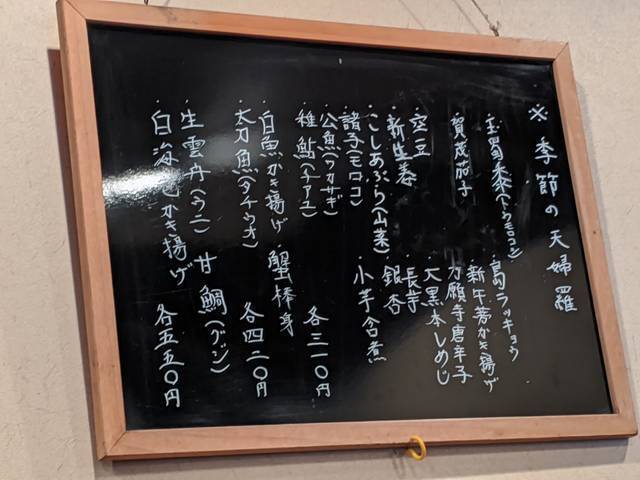 ※季節の天婦羅
・玉蜀黍(トウモロコシ)
・島ラッキョウ
・賀茂茄子
・新牛蒡かき揚げ
・万願寺唐辛子
・空豆
・大黒本しめじ
・新生姜
・長芋
・こしあぶら(山菜)
・銀杏
・諸子(モロコ)
・小芋含煮
・公魚(ワカサギ)
・稚鮎(チアユ)
各三一〇円
・白魚かき揚げ
・蟹棒身
・太刀魚(タチウオ)
各四二〇円
・生雲丹(ウニ)
・甘鯛(グジ)
・白海老かき揚げ
各五五〇円